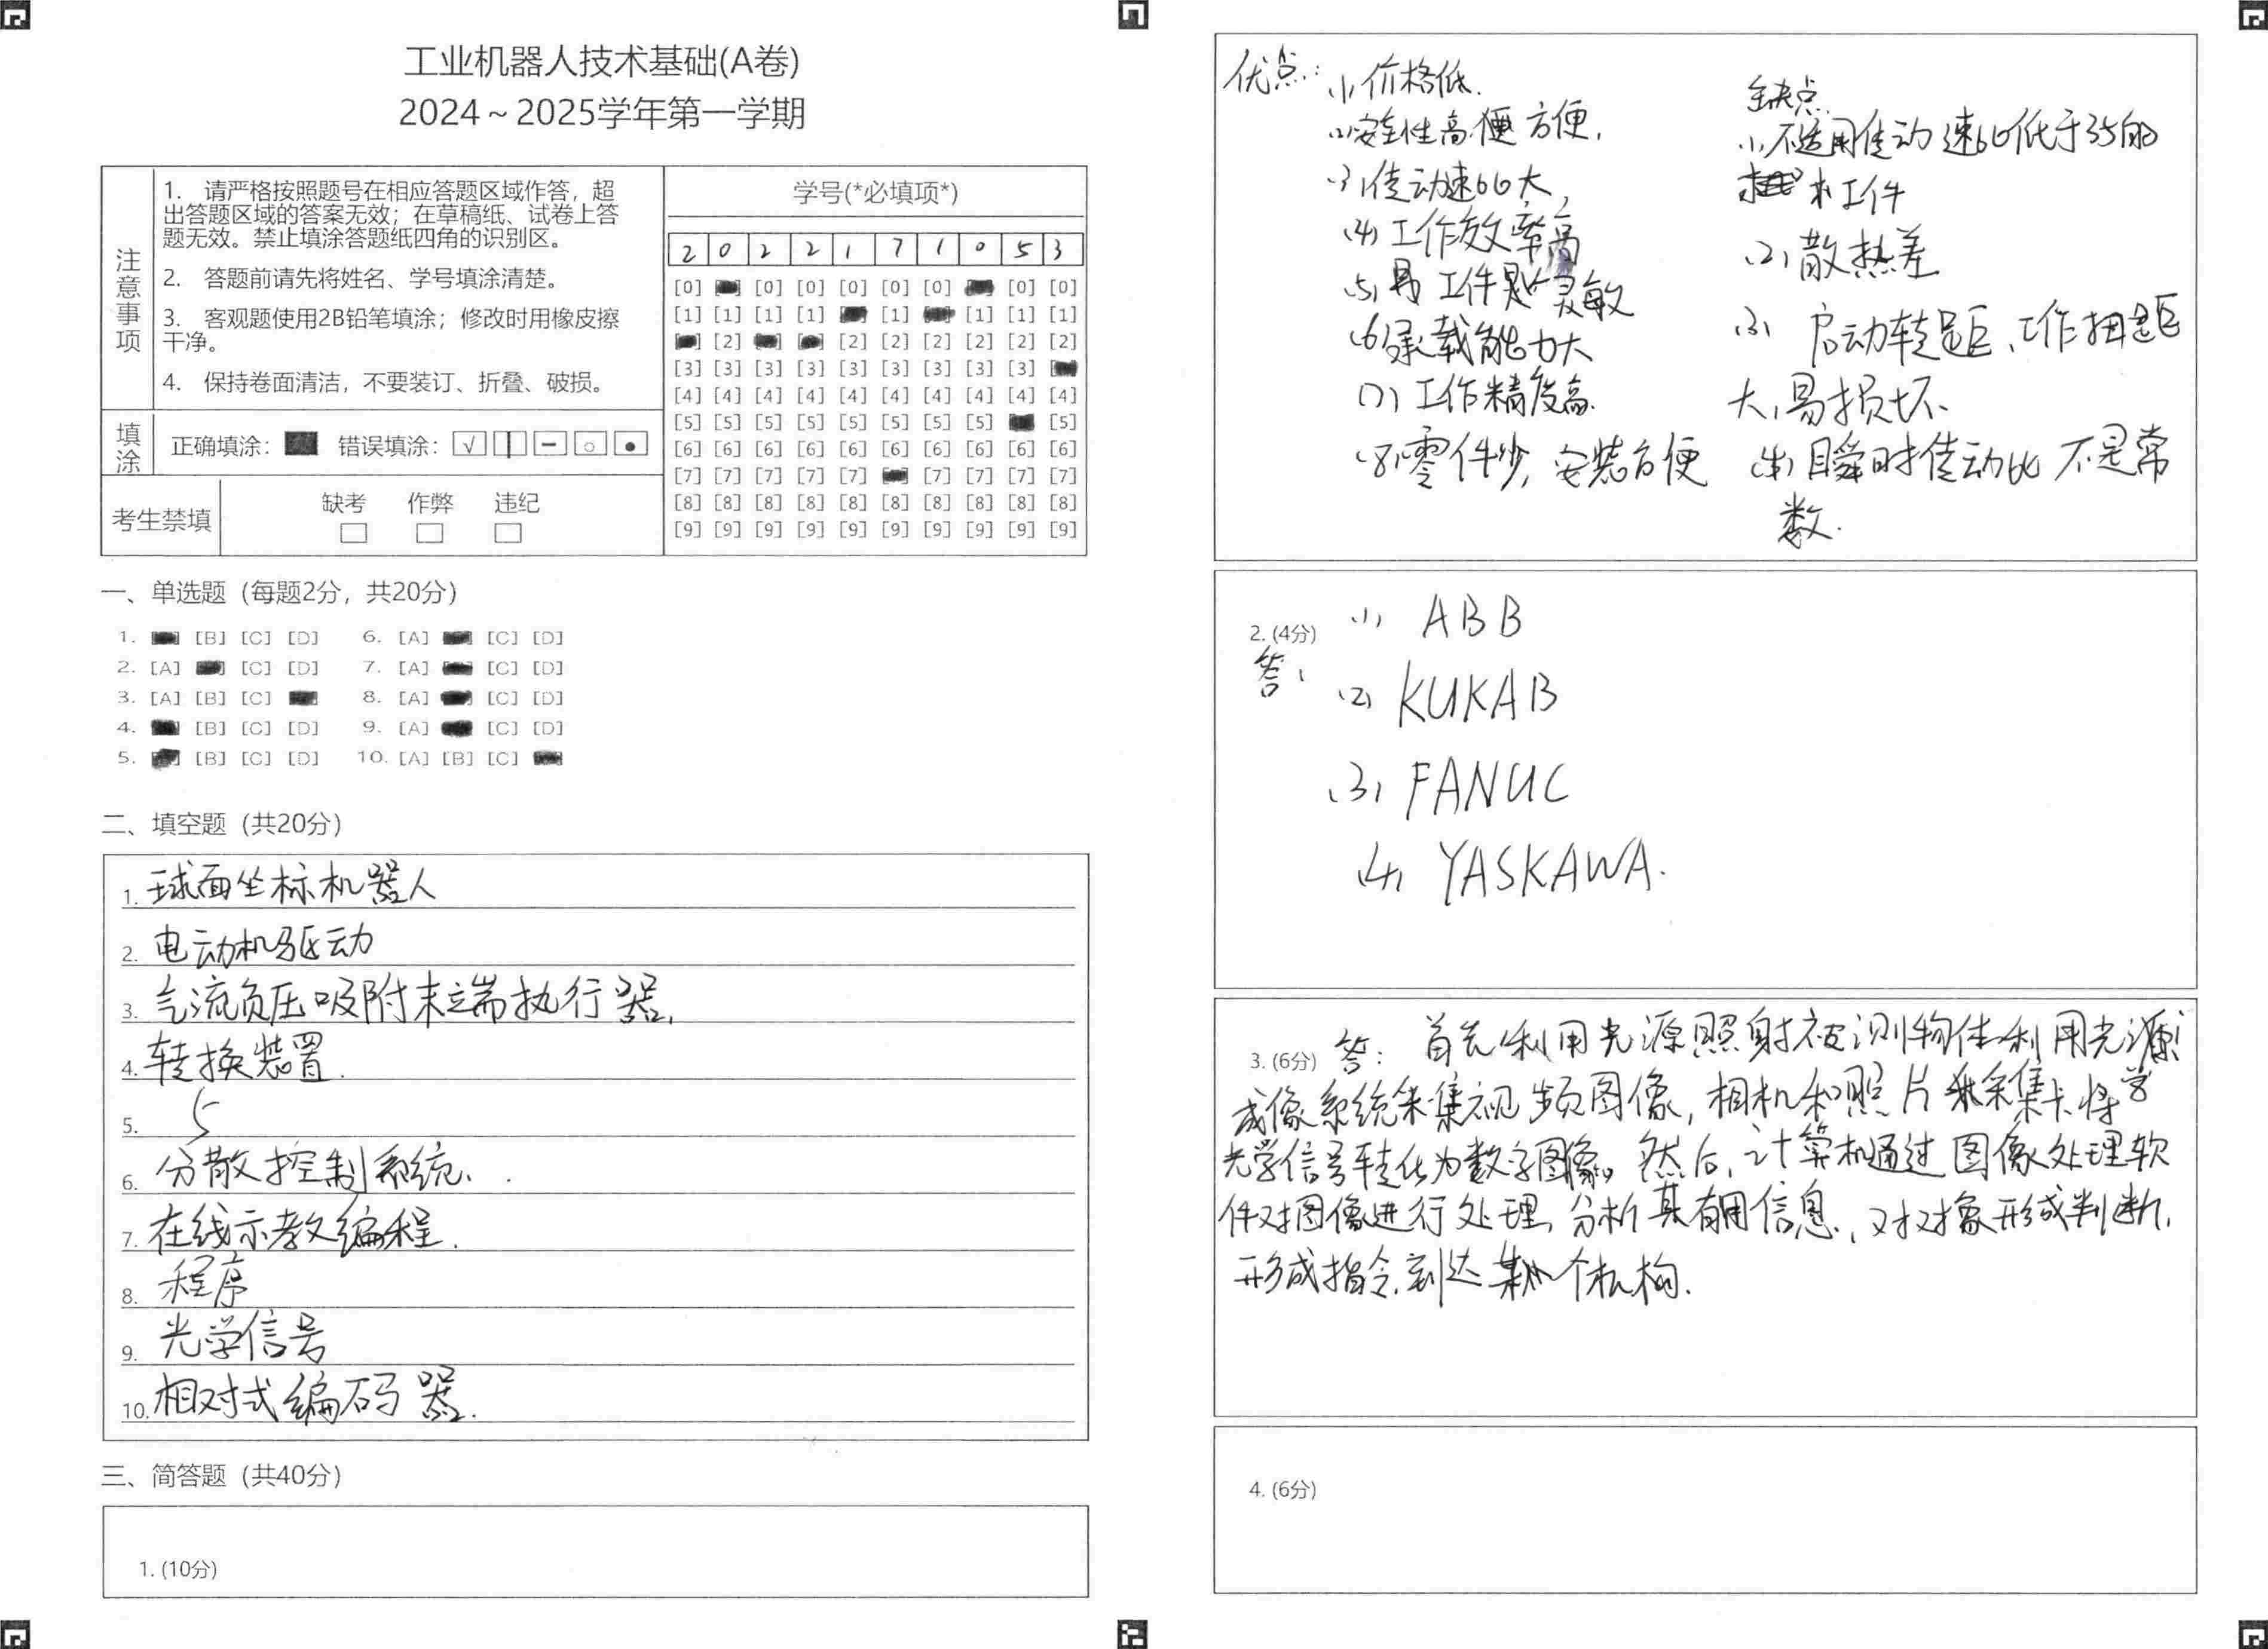 工业机器人技术基础(A卷)
2024～2025学年第一学期
注意事项
1. 请严格按照题号在相应答题区域作答，超
出答题区域的答案无效；在草稿纸、试卷上答
题无效。禁止填涂答题纸四角的识别区。
2. 答题前请先将姓名、学号填涂清楚。
3. 客观题使用2B铅笔填涂；修改时用橡皮擦
干净。
4. 保持卷面清洁，不要装订、折叠、破损。
填涂
正确填涂： 错误填涂：
考生禁填
缺考 作弊 违纪
学号(*必填项*)
2 0 2 2 1 7 1 0 5 3
[0] [0] [0] [0] [0] [0] [0] [0]
[1] [1] [1] [1] [1] [1] [1] [1]
[2] [2] [2] [2] [2] [2] [2]
[3] [3] [3] [3] [3] [3] [3] [3] [3]
[4] [4] [4] [4] [4] [4] [4] [4] [4] [4]
[5] [5] [5] [5] [5] [5] [5] [5] [5]
[6] [6] [6] [6] [6] [6] [6] [6] [6] [6]
[7] [7] [7] [7] [7] [7] [7] [7] [7]
[8] [8] [8] [8] [8] [8] [8] [8] [8] [8]
[9] [9] [9] [9] [9] [9] [9] [9] [9] [9]
一、单选题（每题2分，共20分）
1. [B] [C] [D] 6. [A] [C] [D]
2. [A] [C] [D] 7. [A] [C] [D]
3. [A] [B] [C] 8. [A] [C] [D]
4. [B] [C] [D] 9. [A] [C] [D]
5. [B] [C] [D] 10. [A] [B] [C]
二、填空题（共20分）
1. 球面坐标机器人
2. 电动机驱动
3. 气流负压吸附末端执行器.
4. 转换装置.
5. 5
6. 分散控制系统.
7. 在线示教编程.
8. 程序
9. 光学信号
10. 相对式编码器.
三、简答题（共40分）
1. (10分)
优点：(1)价格低.
(2)安全性高 方便.
(3)传动速比大,
(4)工作效率高
(5) 工件 灵敏
(6)承载能力大
(7)工作精度高.
(8)零件少, 安装方便
缺点
(1)不适用传动速比低于35的
工件
(2)散热差
(3) 启动转距、工作扭距
大,易损坏.
(4)瞬时传动比不是常
数.
2. (4分)
答：
(1) ABB
(2) KUKAB
(3) FANUC
(4) YASKAWA.
3. (6分) 答： 首先,利用光源照射被测物体,利用光源
成像系统采集视频图像, 相机和照片采集卡将
光学信号转化为数字图像。然后,计算机通过图像处理软
件对图像进行处理,分析其有用信息,对对象形成判断,
形成指令,到达 个机构.
4. (6分)